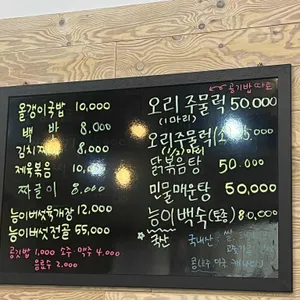 올갱이국밥 10,000
백반 8,000
김치찌개 8,000
제육볶음 10,000
짜글이 8,000
능이버섯육개장 12,000
능이버섯전골 55,000
공깃밥 1,000 소주·맥주 4,000
음료수 2,000
공기밥 따로
오리주물럭 50,000
(1마리)
오리주물럭
닭볶음탕 50.000
민물매운탕 50,000
능이백숙(토종) 80,000
국내산